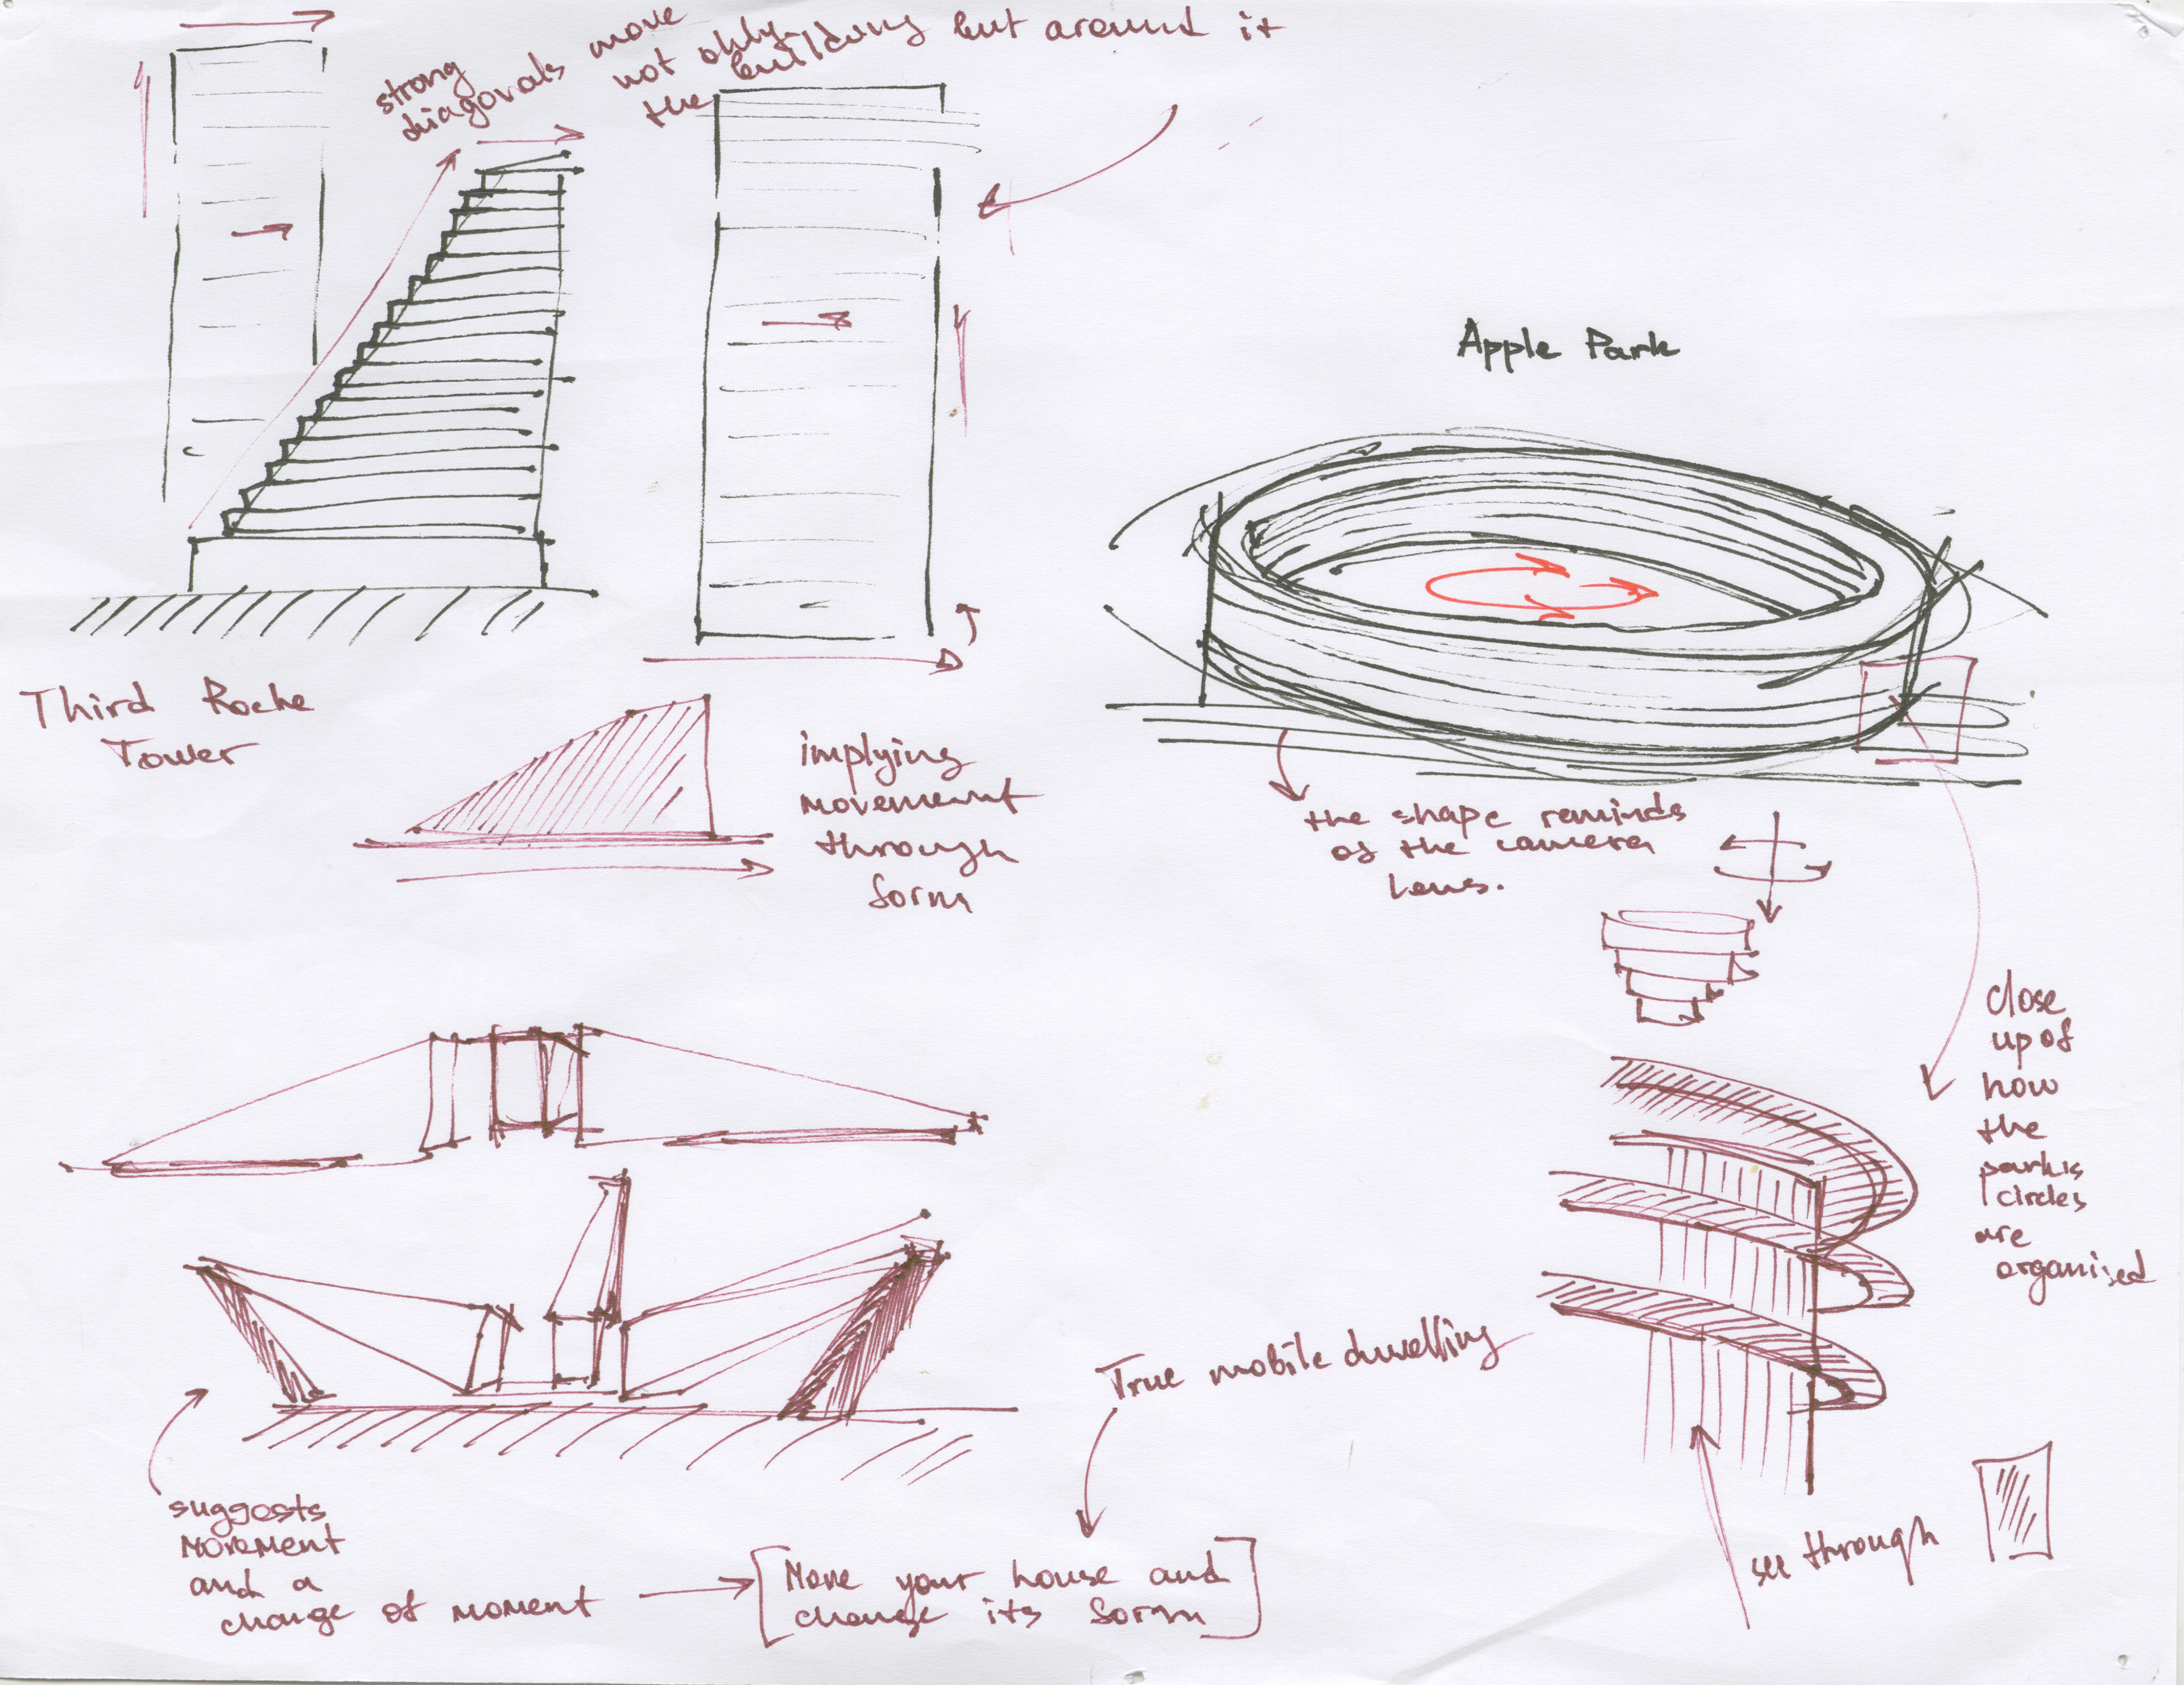 strong
diagonals move
not only
the building but around it
Third Roche
Tower
implying
movement
through
form
Apple Park
the shape reminds
of the camera
lens.
close
up of
how
the
park's
circles
are
organised
True mobile dwelling
suggests
movement
and a
change of moment
[Move your house and
change its form]
see through